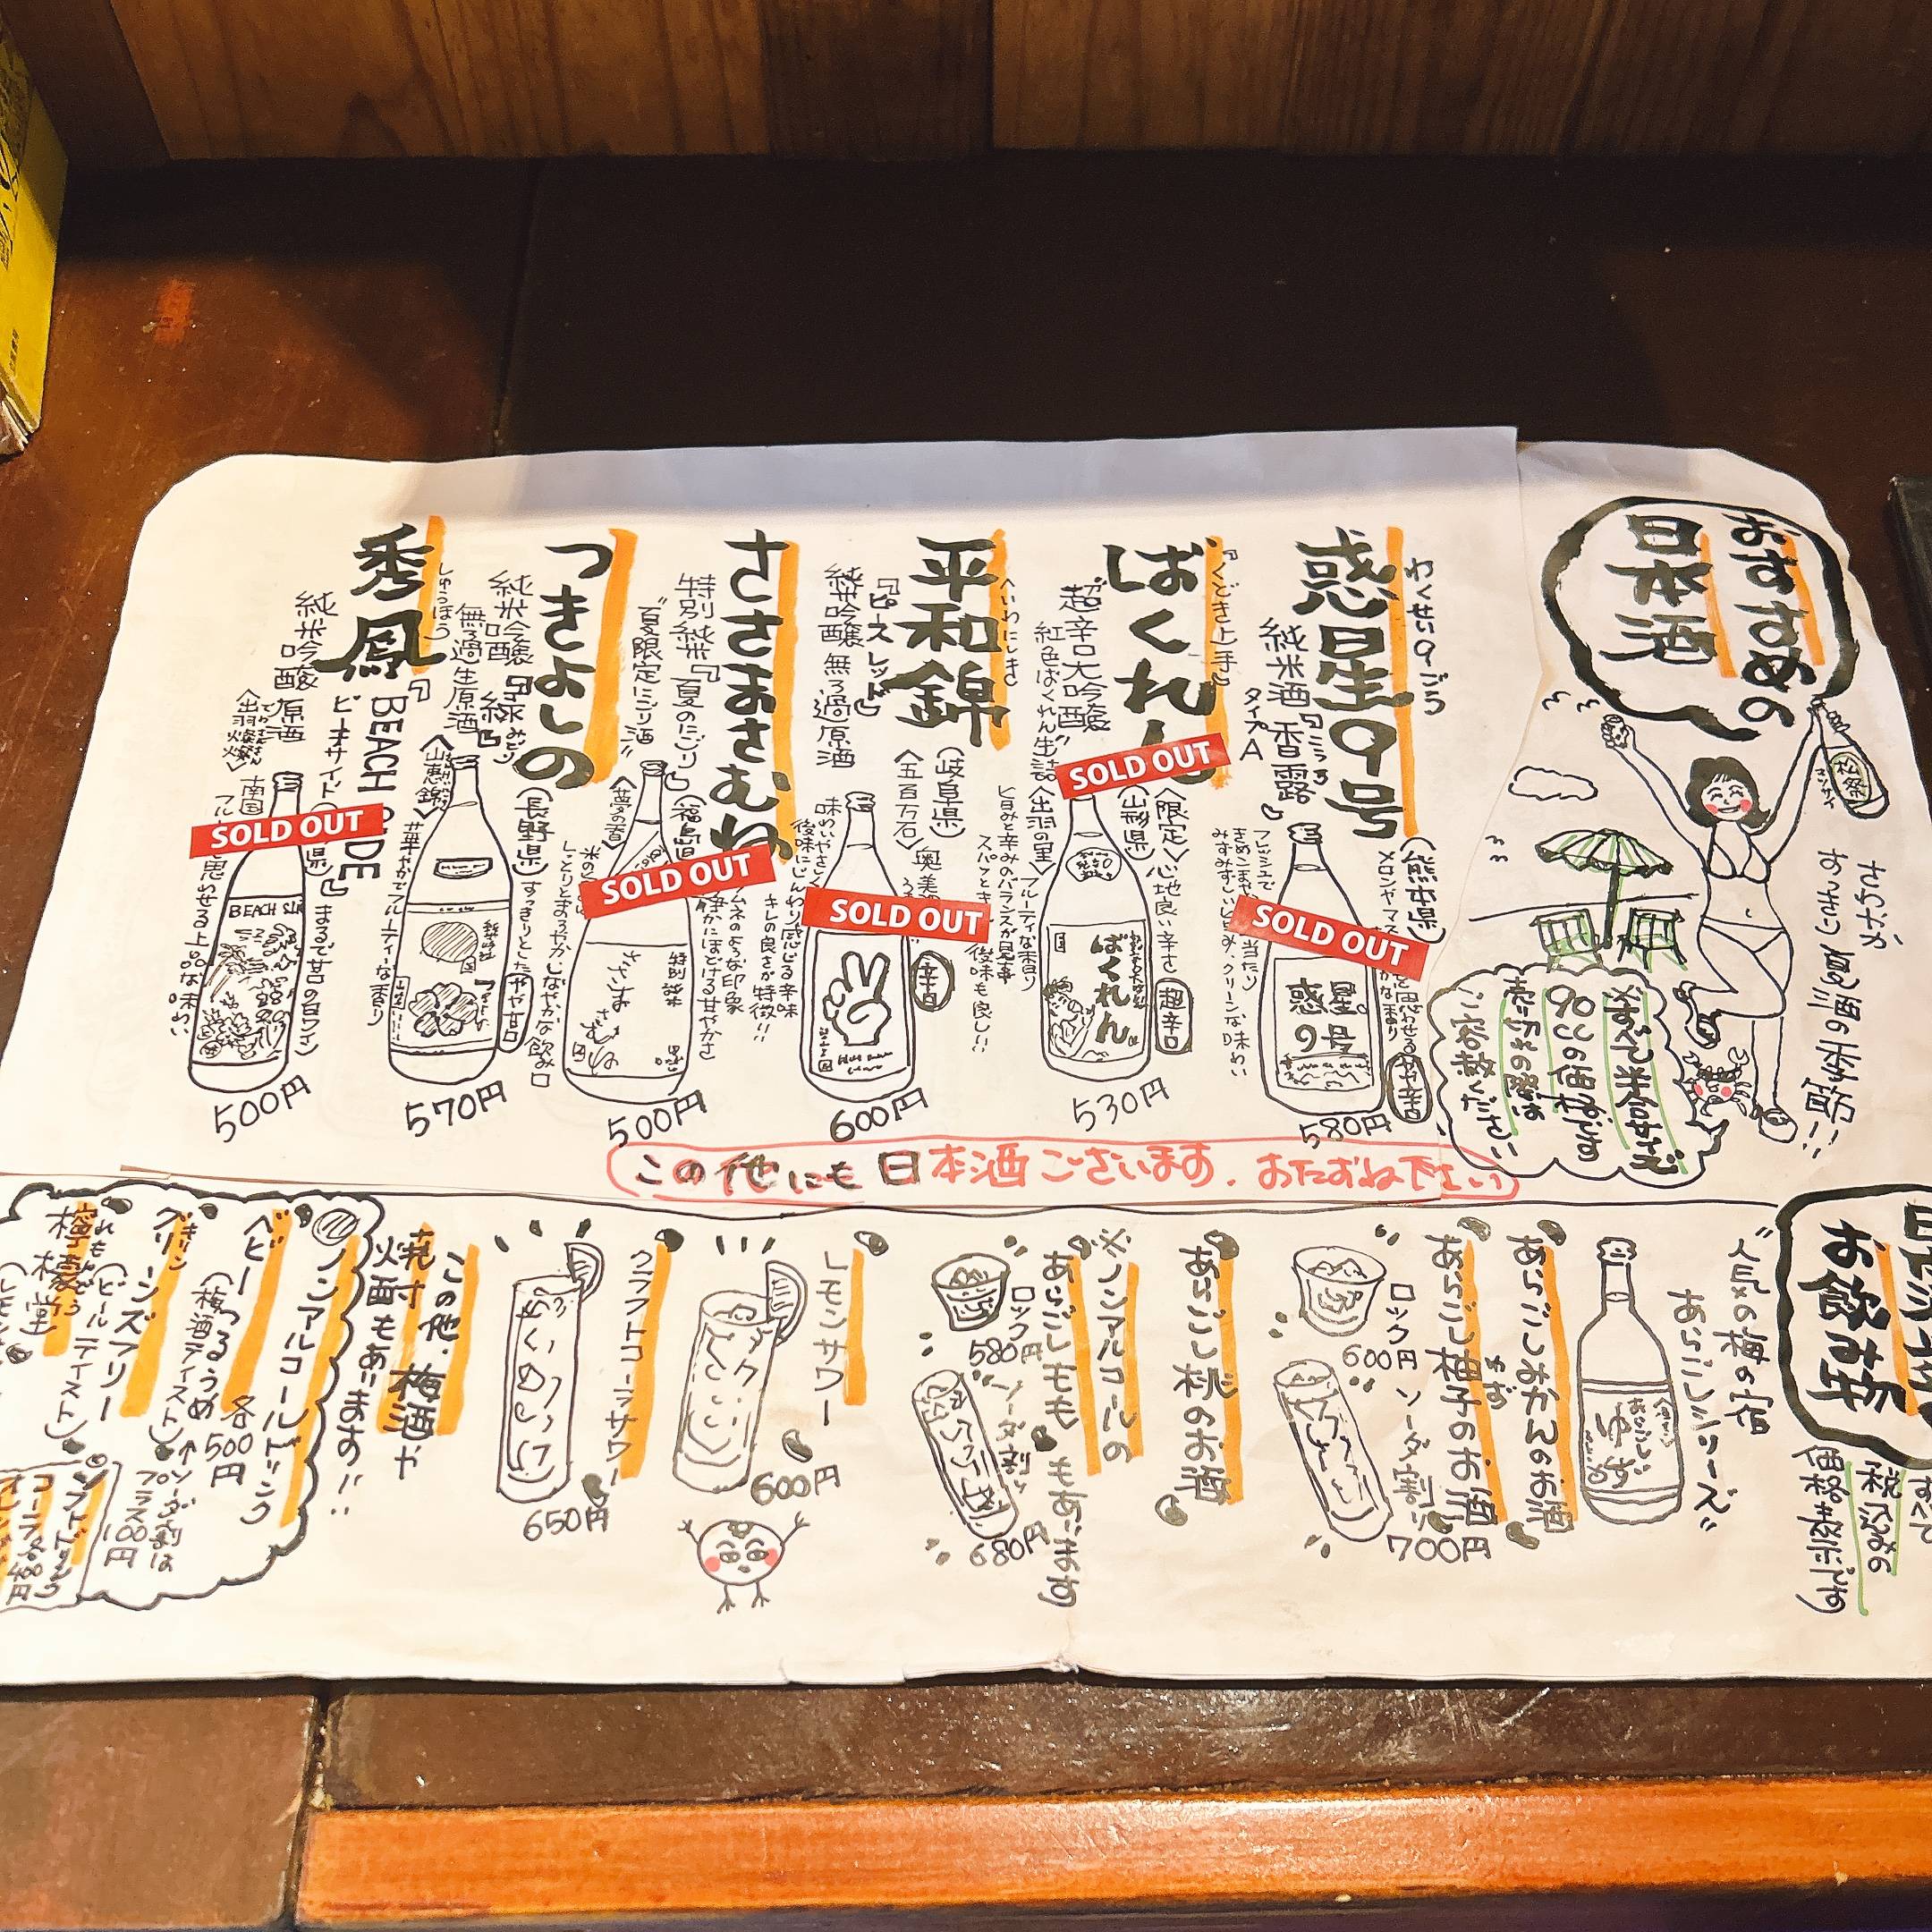 おすすめの
日本酒
さわやか
すっきり 夏酒の季節!!
すべて半合サイズ
90ccの価格です
売り切れの際は
ご容赦ください
わくせい9ごう
惑星9号
純米酒『香露』
タイプA
(熊本県)
SOLD OUT
惑星
9号
やや辛口
580円
『くどき上手』
ばくれん
超辛口大吟醸
紅色ばくれん生詰
〈出羽の里〉
(山形県)
〈限定〉
心地良い辛さ
フルーティな香り
旨みと辛みのバランスが見事
スパッとキレ 後味も良しい
超辛口
SOLD OUT
ばくれん
530円
へいわにしき
平和錦
『ピースレッド』
純米吟醸 無ろ過原酒
(岐阜県)
〈五百万石〉
後味にじんわり感じる辛味
キレの良さが特徴!!
辛口
SOLD OUT
600円
ささまさむね
特別純米『夏のにごり』
"夏限定にごり酒"
(福島県)
〈夢の香〉
SOLD OUT
特別純米
500円
つきよしの
純米吟醸『緑』
みどり
無ろ過生原酒
(長野県)
〈山恵錦〉
すっきりとした
しっとりとまろやかしなやかな飲み口
華やかでフルーティな香り
やや甘口
570円
しゅうほう
秀鳳
『BEACH SIDE』
ビーチサイド
純米吟醸 原酒
〈出羽燦々〉
まるで甘口の白ワイン
南国フルーツ
思わせる上品な味わい
SOLD OUT
BEACH SIDE
500円
この他にも日本酒ございます. おたずね下さい
お飲み物
すべて
税込みの
価格表示です
"人気の梅の宿
あらごしシリーズ"
あらごし
ゆず
あらごしみかんのお酒
あらごし柚子のお酒
ゆず
ロック
600円
ソーダ割り
700円
あらごし桃のお酒
※ノンアルコールの
あらごしもも もあります
ロック
580円
ソーダ割り
680円
レモンサワー
600円
クラフトコーラサワー
650円
この他、梅酒や
焼酎
火酒もあります!!
ノンアルコールドリンク
各500円
ベビーつるうめ
(梅酒テイスト)
↑ソーダ割は
プラス100円
キリン
グリーンズフリー
(ビールテイスト)
れもんどう
檸檬堂